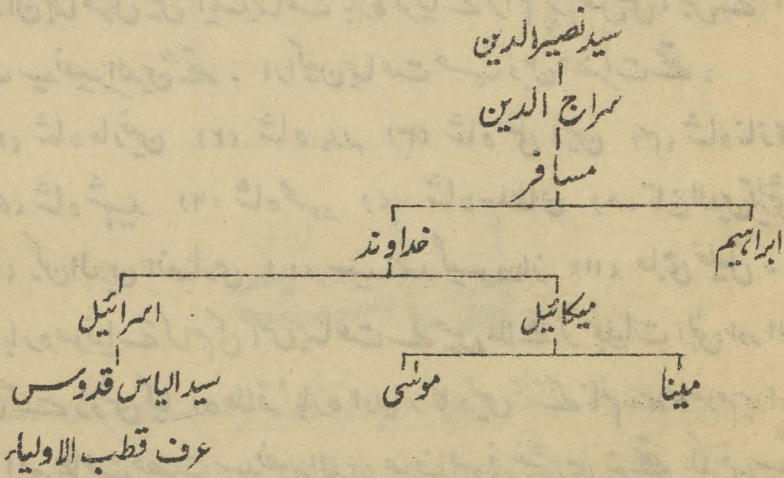 سید نصیر الدین
سراج الدین
مسافر
ابراہیم
خداوند
میکائیل
اسرائیل
مینا
موسٰی
سید الیاس قدوس
عرف قطب الاولیاء